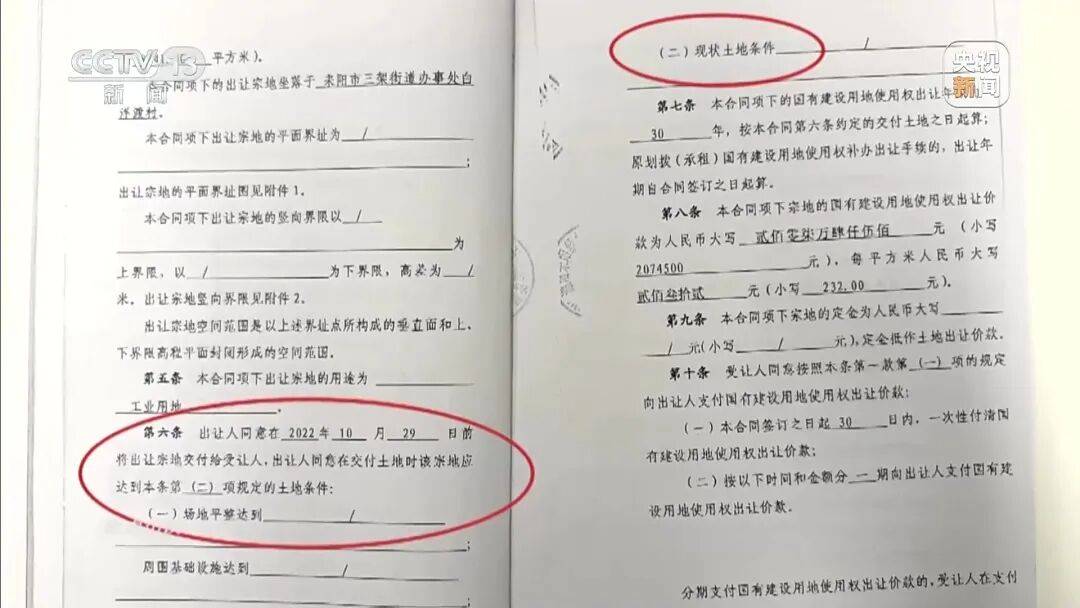 CCTV 13
新闻
央视
新闻
平方米).
本合同项下的出让宗地坐落于 耒阳市三架街道办事处白
洋渡村.
本合同项下出让宗地的平面界址为 /
;
出让宗地的平面界址图见附件1.
本合同项下出让宗地的竖向界限以 /
为
上界限, 以 / 为下界限, 高差为 /
米. 出让宗地竖向界限见附件2.
出让宗地空间范围是以上述界址点所构成的垂直面和上、
下界限高程平面封闭形成的空间范围.
第五条 本合同项下出让宗地的用途为
工业用地 .
第六条 出让人同意在 2022 年 10 月 29 日前
将出让宗地交付给受让人, 出让人同意在交付土地时该宗地应
达到本条第 (二) 项规定的土地条件:
(一) 场地平整达到 /
;
周围基础设施达到 /
;
(二) 现状土地条件 /
第七条 本合同项下的国有建设用地使用权出让年
30 年, 按本合同第六条约定的交付土地之日起算;
原划拨 (承租) 国有建设用地使用权补办出让手续的, 出让年
期自合同签订之日起算.
第八条 本合同项下宗地的国有建设用地使用权出让价
款为人民币大写 贰佰零柒万肆仟伍佰 元 (小写
2074500 元), 每平方米人民币大写
贰佰叁拾贰 元 (小写 232.00 元).
第九条 本合同项下宗地的定金为人民币大写
/ 元(小写 / 元), 定金抵作土地出让价款.
第十条 受让人同意按照本条第一款第 (一) 项的规定
向出让人支付国有建设用地使用权出让价款:
(一) 本合同签订之日起 30 日内, 一次性付清国
有建设用地使用权出让价款;
(二) 按以下时间和金额分 一 期向出让人支付国有建
设用地使用权出让价款.
分期支付国有建设用地使用权出让价款的, 受让人在支付